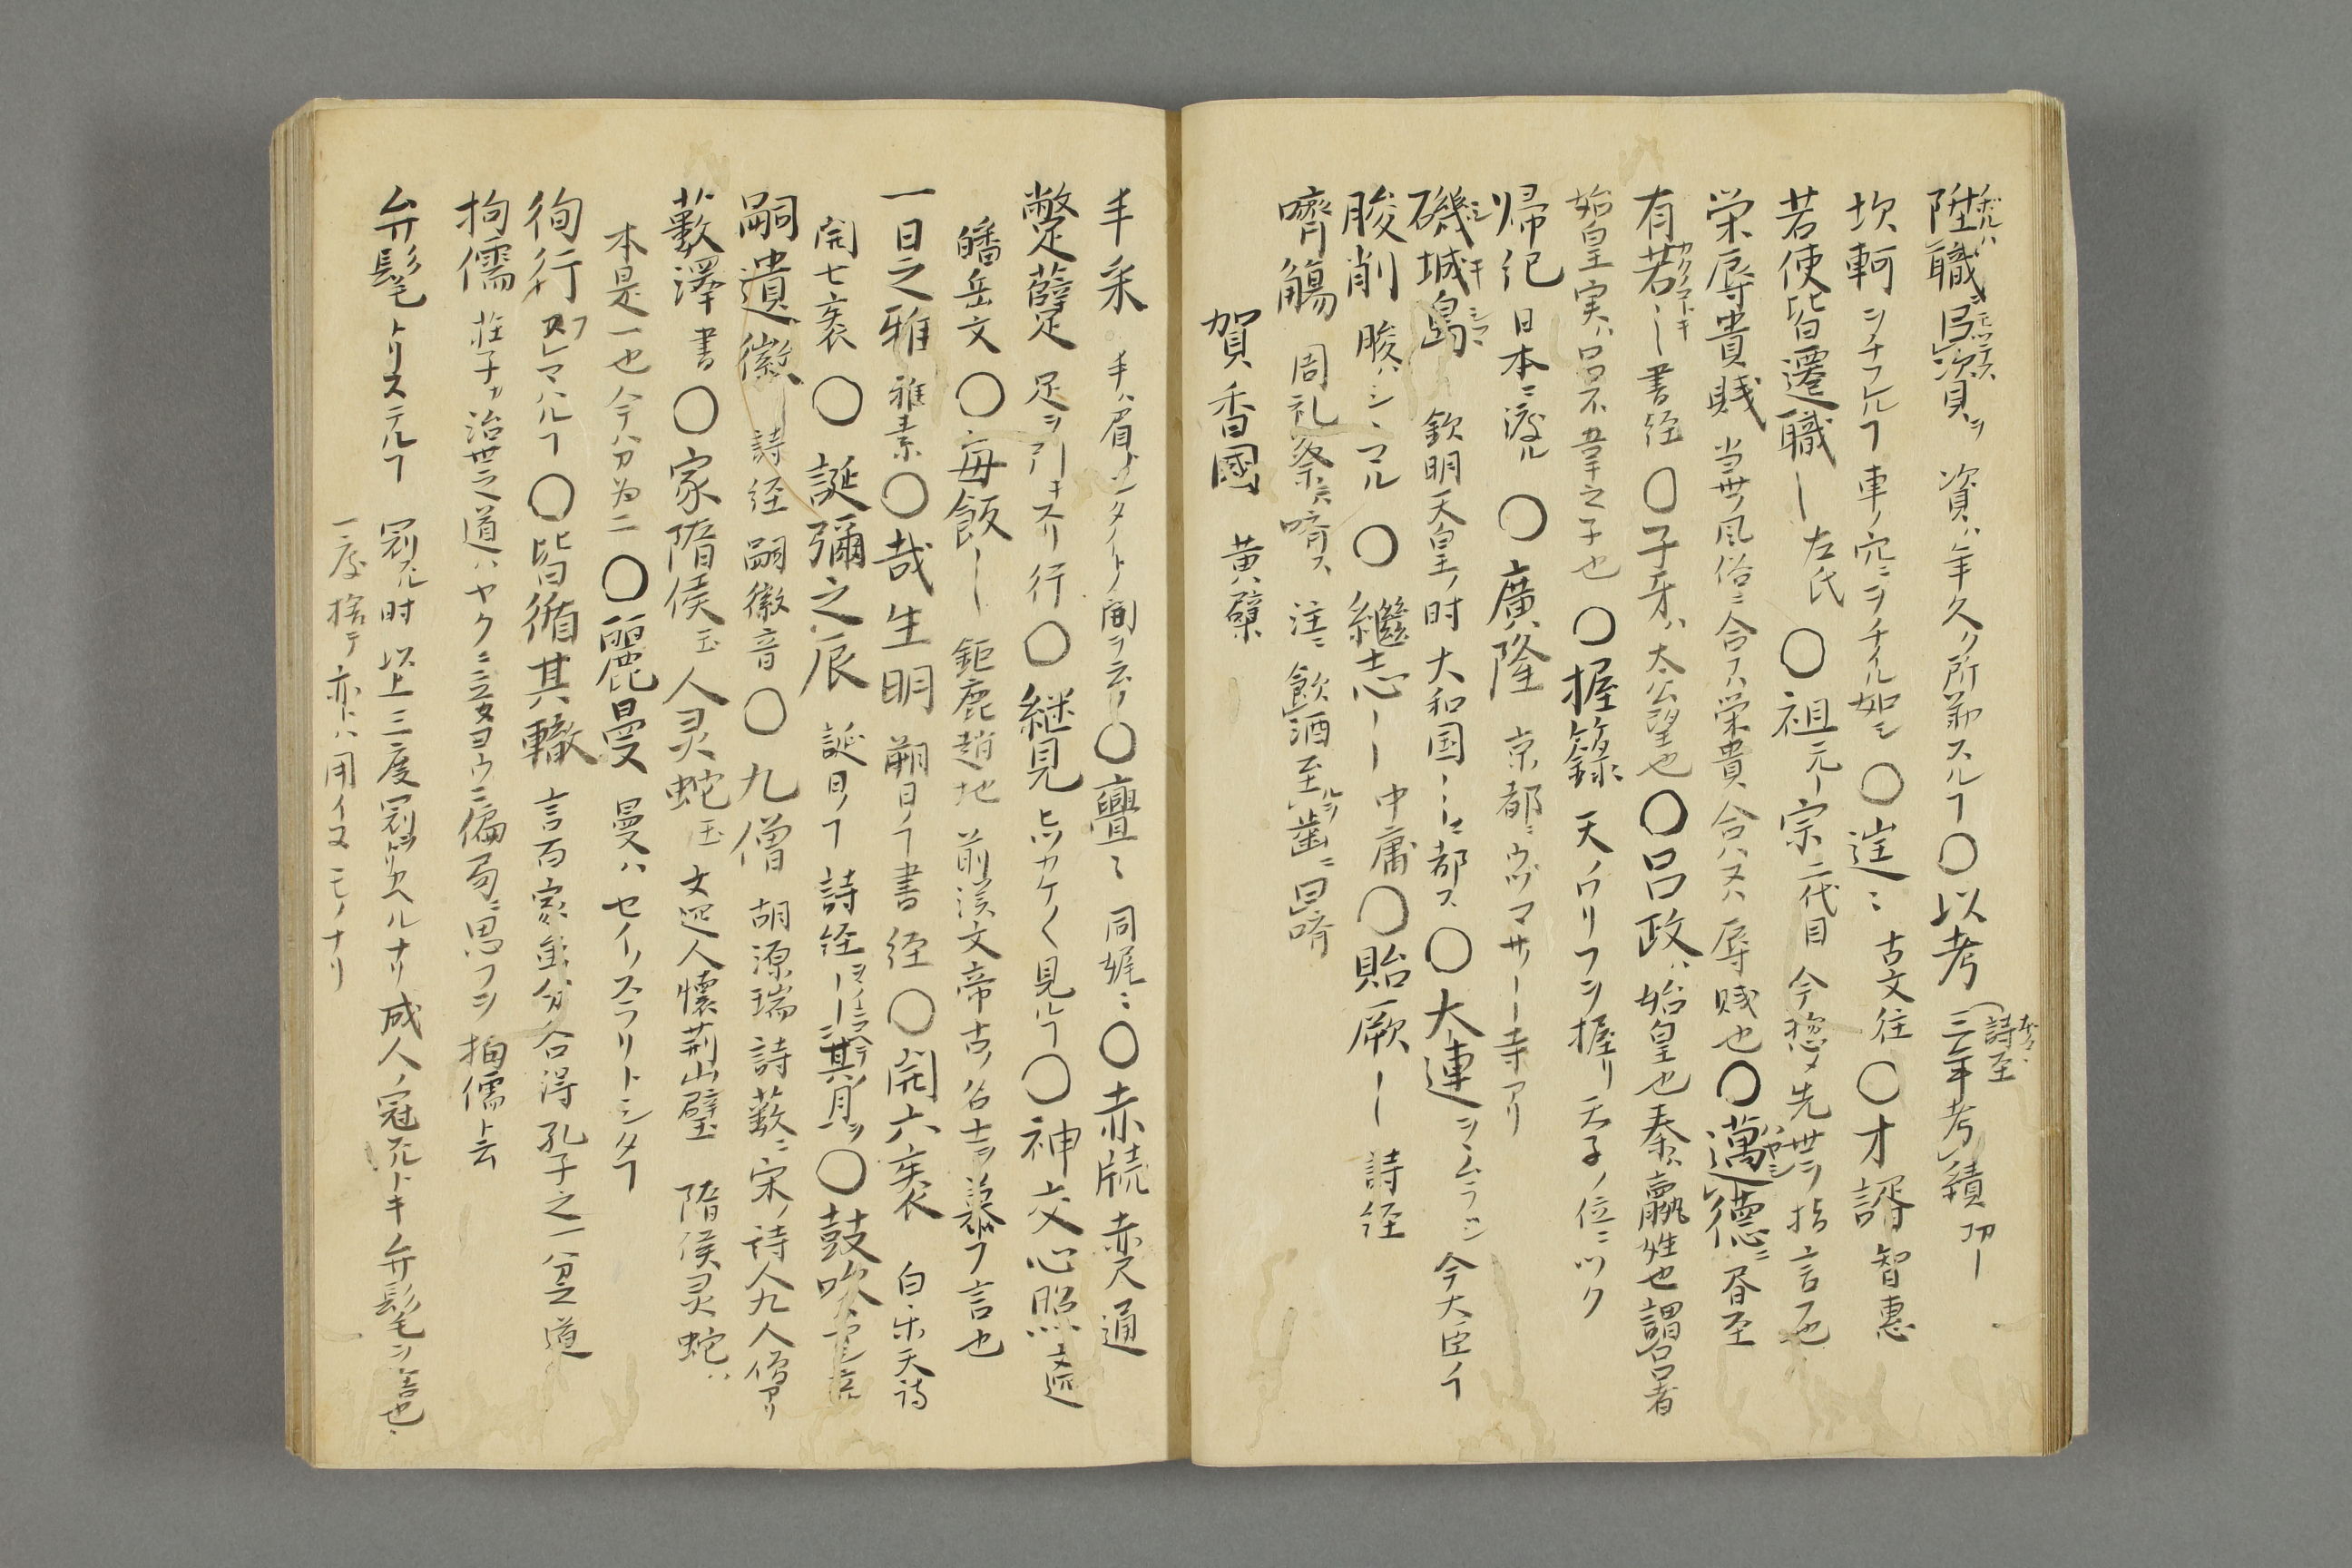 陞職 資ハ年久ク所勤スルヿ〇以考 三年考績
坎軻 ヲチフルヽヿ車ノ穴ニヲチイル如シ〇迋ミ 古文往〇才諝 智惠
若使皆遷職ー左氏〇祖 元ー宗二代目 今惣〆先世ヲ指言也
栄辱貴賎 当世ノ風俗ニ合フハ栄貴合ハヌハ辱賎也〇邁德ニ
有若ー書経〇子牙ハ太公望也〇呂政ハ始皇也秦ハ嬴姓也謂呂者
始皇実ハ呂不韋之子也〇握籙 天ノワリフヲ握リ天子ノ位ニツク
帰化日本ニ渡ル〇廣隆 京都ニウヅマサー寺アリ
磯城島 欽明天皇ノ时大和国ニ都ス〇大連 今大臣
朘削 朘ハシヽマル〇繼志ー中庸〇貽厥ー詩経
嚌觴 周礼祭 注ニ飲酒至歯ニ曰啐
賀香國 黄檗
丰采 丰ハ眉 間ヲ云〇亹ミ 同娓ミ〇赤牘 赤尺通
蹩躠 足ヲ引キスリ行〇継見 見ルヿ〇神交心照 文選
皤岳文〇毎飯ー鉅鹿趙地 前漢文帝古ノ名士ヲ慕フ言也
一日之雅 雅素〇哉生明 朔日ノヿ書経〇開六袠 白楽天詩
開七袠〇誕彌之辰 誕日ノヿ詩経〇鼓吹
嗣遺徽ー詩経嗣徽音〇九僧 胡源瑞詩藪ニ宋ノ詩人九人僧アリ
藪澤書〇家隋侯玉人灵蛇玉 文選人懐荊山璧 隋侯灵蛇ハ
本是一也今ハ分為二〇麗曼 曼ハセイノスラリトシタヿ
徇行 フレマハルヿ〇皆循其轍 言百家 各得孔子之一 道
拘儒 荘子カ治世之道ハヤクニ立タヌヨウニ偏局ニ思フヲ拘儒ト云
弁髦 トリステルヿ 冠スル时以上三度冠 ナリ成人ノ冠 トキ弁髦ヲ 也
一度捨テ亦トハ用イヌモノナリ